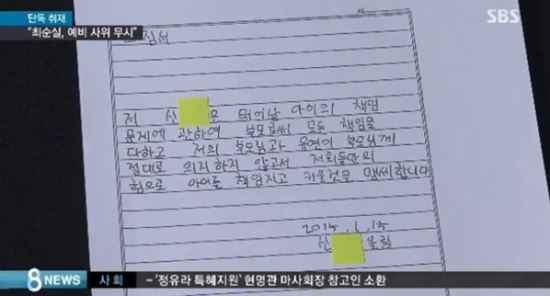 단독 취재
"최순실, 예비 사위 무시"
SBS
저 신 태어날 아이의 책임
문제에 관하여 부모로써 모든 책임을
다하고 저의 부모님과 유연이 부모님께
절대로 의지하지 않고서 저희들만의
힘으로 아이를 책임지고 키울것을 맹세합니다
2015. 1, 13
신 올림
8 NEWS 사 회 - '정유라 특혜지원' 현명관 마사회장 참고인 소환